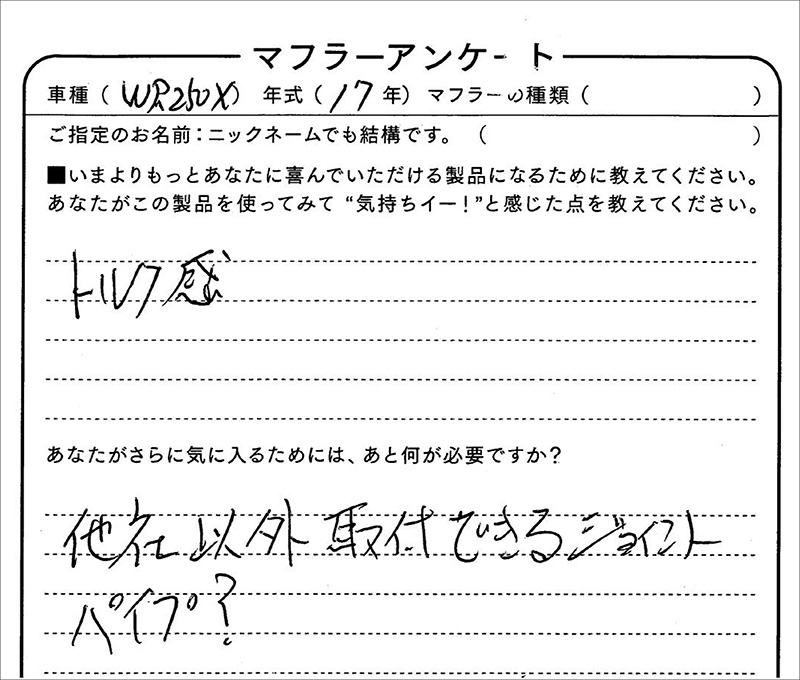 マフラーアンケート
車種（WR250X） 年式（17年）マフラーの種類（　　　）
ご指定のお名前：ニックネームでも結構です。（　　　）
■いまよりもっとあなたに喜んでいただける製品になるために教えてください。
あなたがこの製品を使ってみて “気持ちイー！”と感じた点を教えてください。
トルク感
あなたがさらに気に入るためには、あと何が必要ですか？
他社以外取付できるジョイント
パイプ？